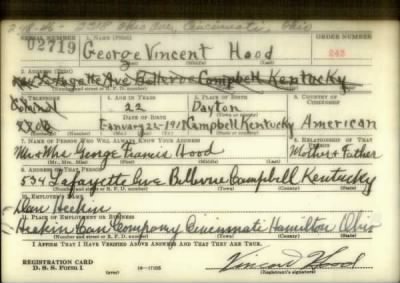 2-18-46- 2218 Ohio Ave, Cincinnati, Ohio
SERIAL NUMBER 1. NAME (Print) ORDER NUMBER
02719 George Vincent Hood 243
(First) (Middle) (Last)
2. ADDRESS (Print)
Lafayette Ave Bellevue Campbell Kentucky
(Number and street or R. F. D. number) (Town) (County) (State)
3. TELEPHONE 4. AGE IN YEARS 5. PLACE OF BIRTH 6. COUNTRY OF CITIZENSHIP
22 Dayton
DATE OF BIRTH (Town or county)
January 22-1918 Campbell Kentucky American
7. NAME OF PERSON WHO WILL ALWAYS KNOW YOUR ADDRESS 8. RELATIONSHIP OF THAT PERSON
Mr & Mrs George Francis Hood Mother & Father
(Mr., Mrs., Miss) (First) (Middle) (Last)
9. ADDRESS OF THAT PERSON
534 Lafayette Ave Bellevue Campbell Kentucky
(Number and street or R. F. D. number) (Town) (County) (State)
10. EMPLOYER'S NAME
Dan Heekin
11. PLACE OF EMPLOYMENT OR BUSINESS
Heekin Can Company Cincinnati Hamilton Ohio
(Number and street or R. F. D. number) (Town) (County) (State)
I AFFIRM THAT I HAVE VERIFIED ABOVE ANSWERS AND THAT THEY ARE TRUE.
REGISTRATION CARD
D. S. S. Form 1 16-17105 Vincent Hood
(Registrant's signature)